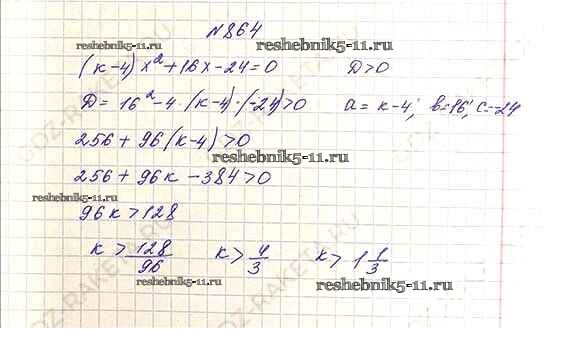 №864
reshebnik5-11.ru
reshebnik5-11.ru
(к-4)x²+16x-24=0 D>0
D= 16²-4·(к-4)·(-24)>0 a= к-4; в=16; c=-24
256+96(к-4)>0
reshebnik5-11.ru
256+96к-384>0
reshebnik5-11.ru
96к>128
к>128/96 к>4/3 к>1 1/3
reshebnik5-11.ru
reshebnik5-11.ru
GDZ-RAKETA.RU